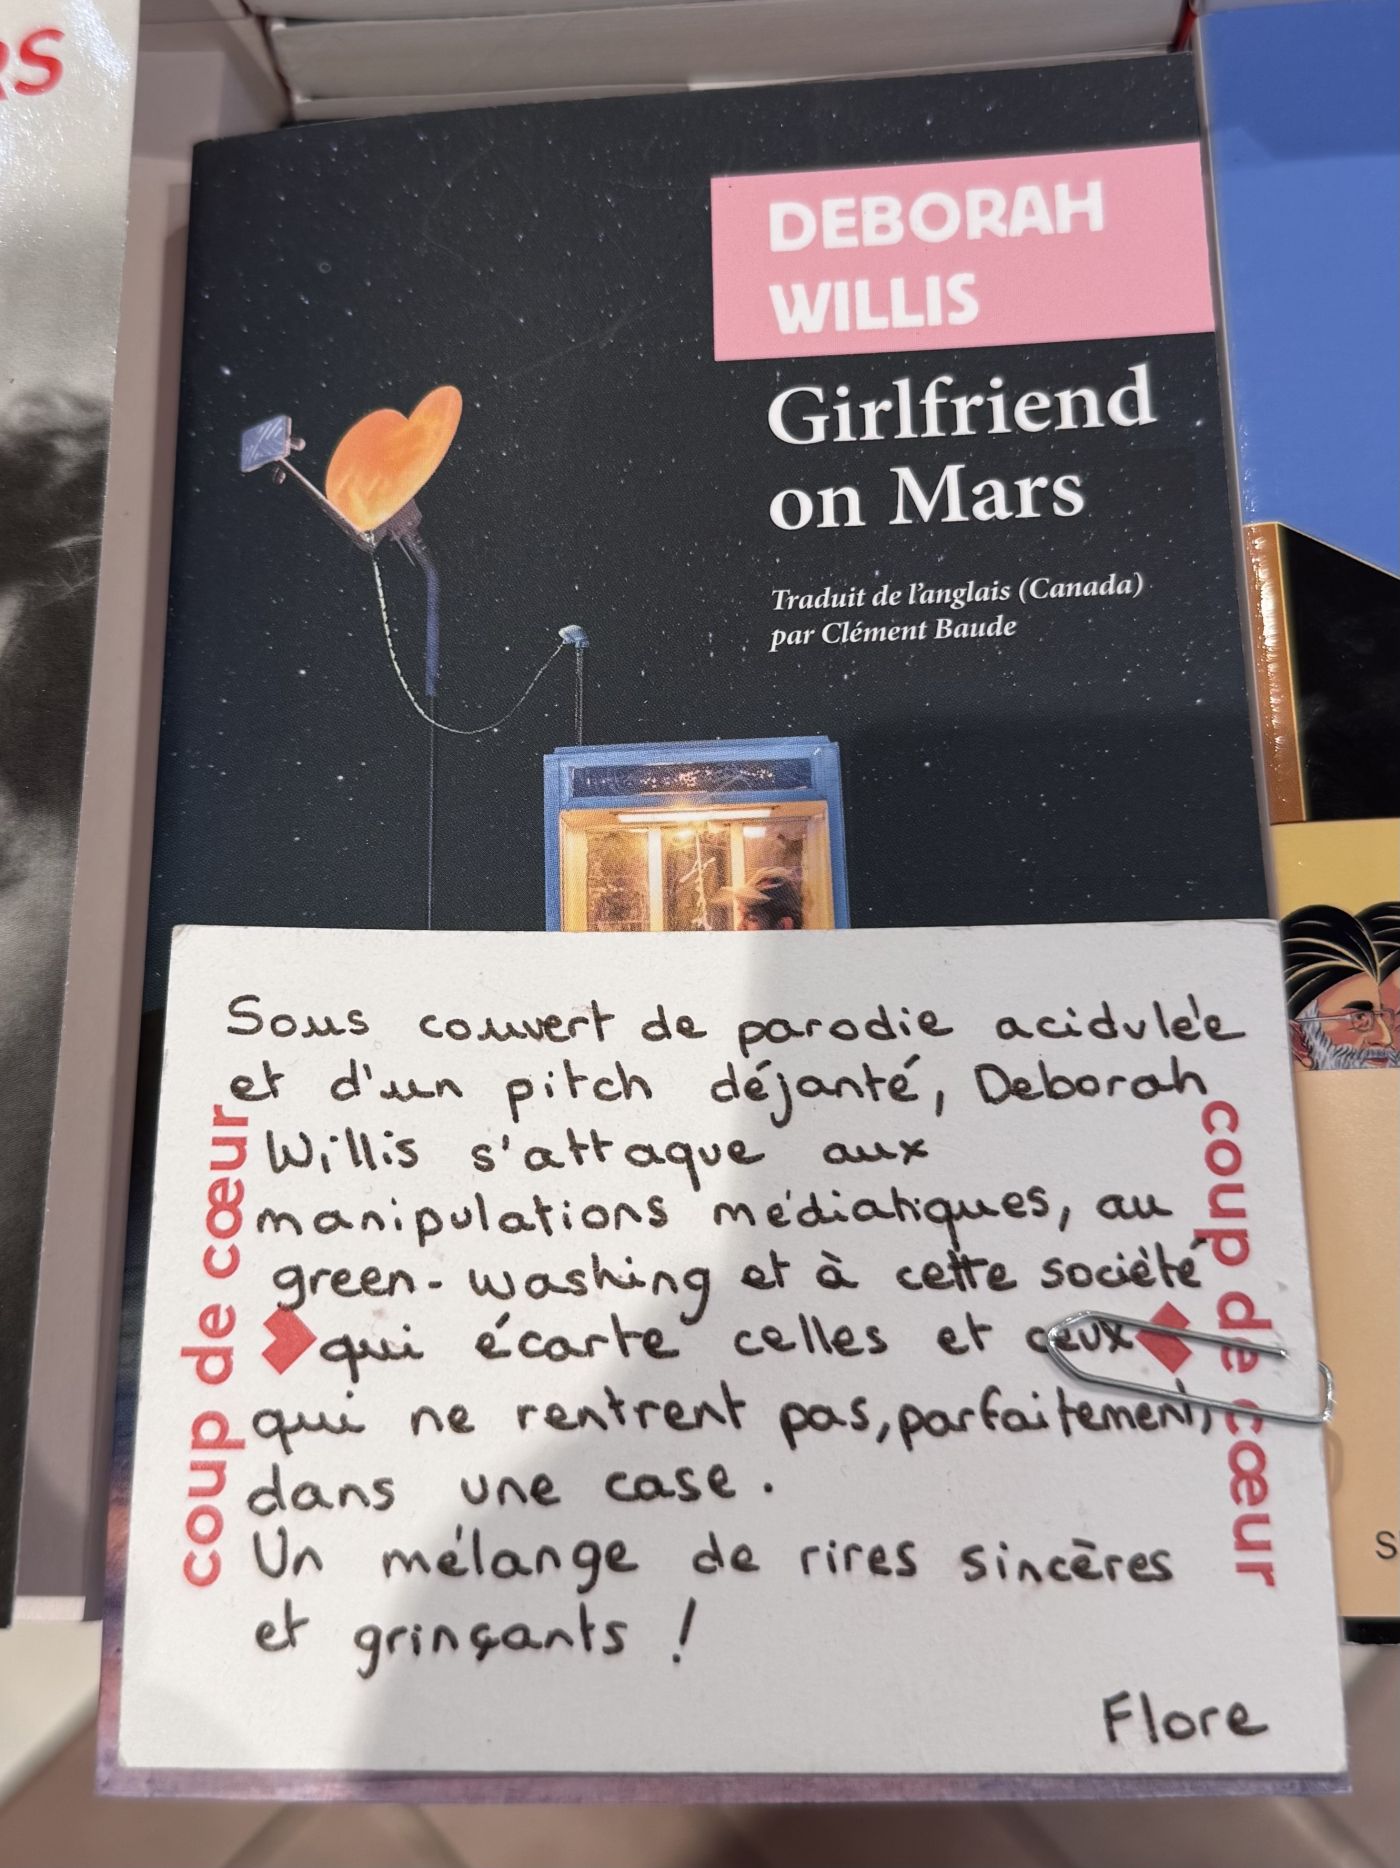 RS
DEBORAH
WILLIS
Girlfriend
on Mars
Traduit de l'anglais (Canada)
par Clément Baude
Sous couvert de parodie acidulée
et d'un pitch déjanté, Deborah
Willis s'attaque aux
manipulations médiatiques, au
green-washing et à cette société
qui écarte celles et ceux
qui ne rentrent pas, parfaitement,
dans une case.
Un mélange de rires sincères
et grinçants !
Flore
coup de cœur
coup de cœur
S